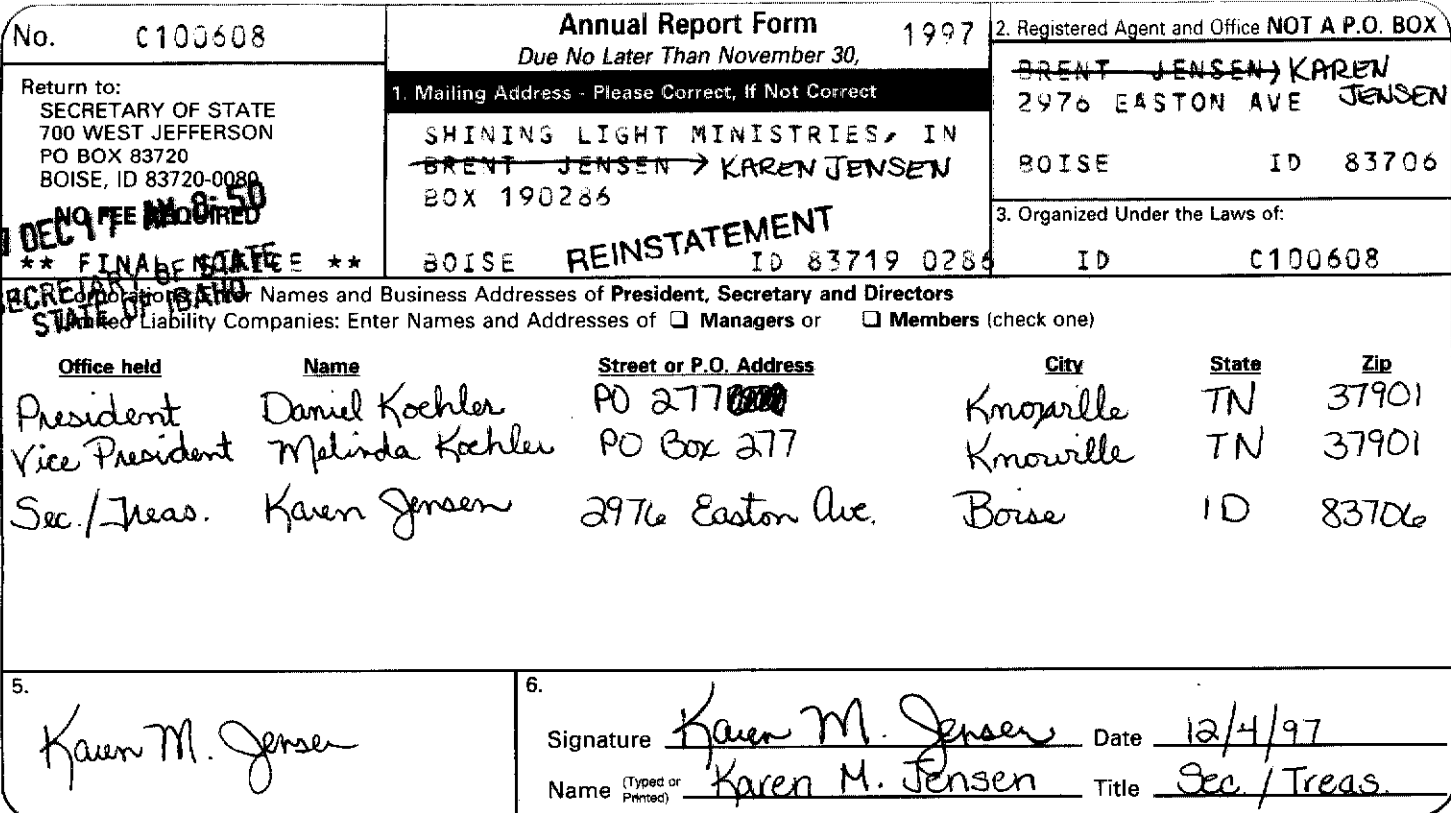 No. C100608
Return to:
SECRETARY OF STATE
700 WEST JEFFERSON
PO BOX 83720
BOISE, ID 83720-0080
NO FEE REQUIRED
DEC 17 AM 8:50
** FINAL NOTICE **
SECRETARY OF STATE
STATE OF IDAHO
Annual Report Form 1997
Due No Later Than November 30,
1. Mailing Address - Please Correct, If Not Correct
SHINING LIGHT MINISTRIES, IN
BRENT JENSEN → KAREN JENSEN
BOX 190286
REINSTATEMENT
BOISE ID 83719 0286
2. Registered Agent and Office NOT A P.O. BOX
BRENT JENSEN → KAREN JENSEN
2976 EASTON AVE
BOISE ID 83706
3. Organized Under the Laws of:
ID C100608
Corporations: Enter Names and Business Addresses of President, Secretary and Directors
Limited Liability Companies: Enter Names and Addresses of ☐ Managers or ☐ Members (check one)
Office held Name Street or P.O. Address City State Zip
President Daniel Koehler PO 277 Knoxville TN 37901
Vice President Melinda Koehler PO Box 277 Knoxville TN 37901
Sec./Treas. Karen Jensen 2976 Easton Ave. Boise ID 83706
5.
Karen M. Jensen
6.
Signature Karen M. Jensen Date 12/4/97
Name (Typed or Printed) Karen M. Jensen Title Sec. / Treas.